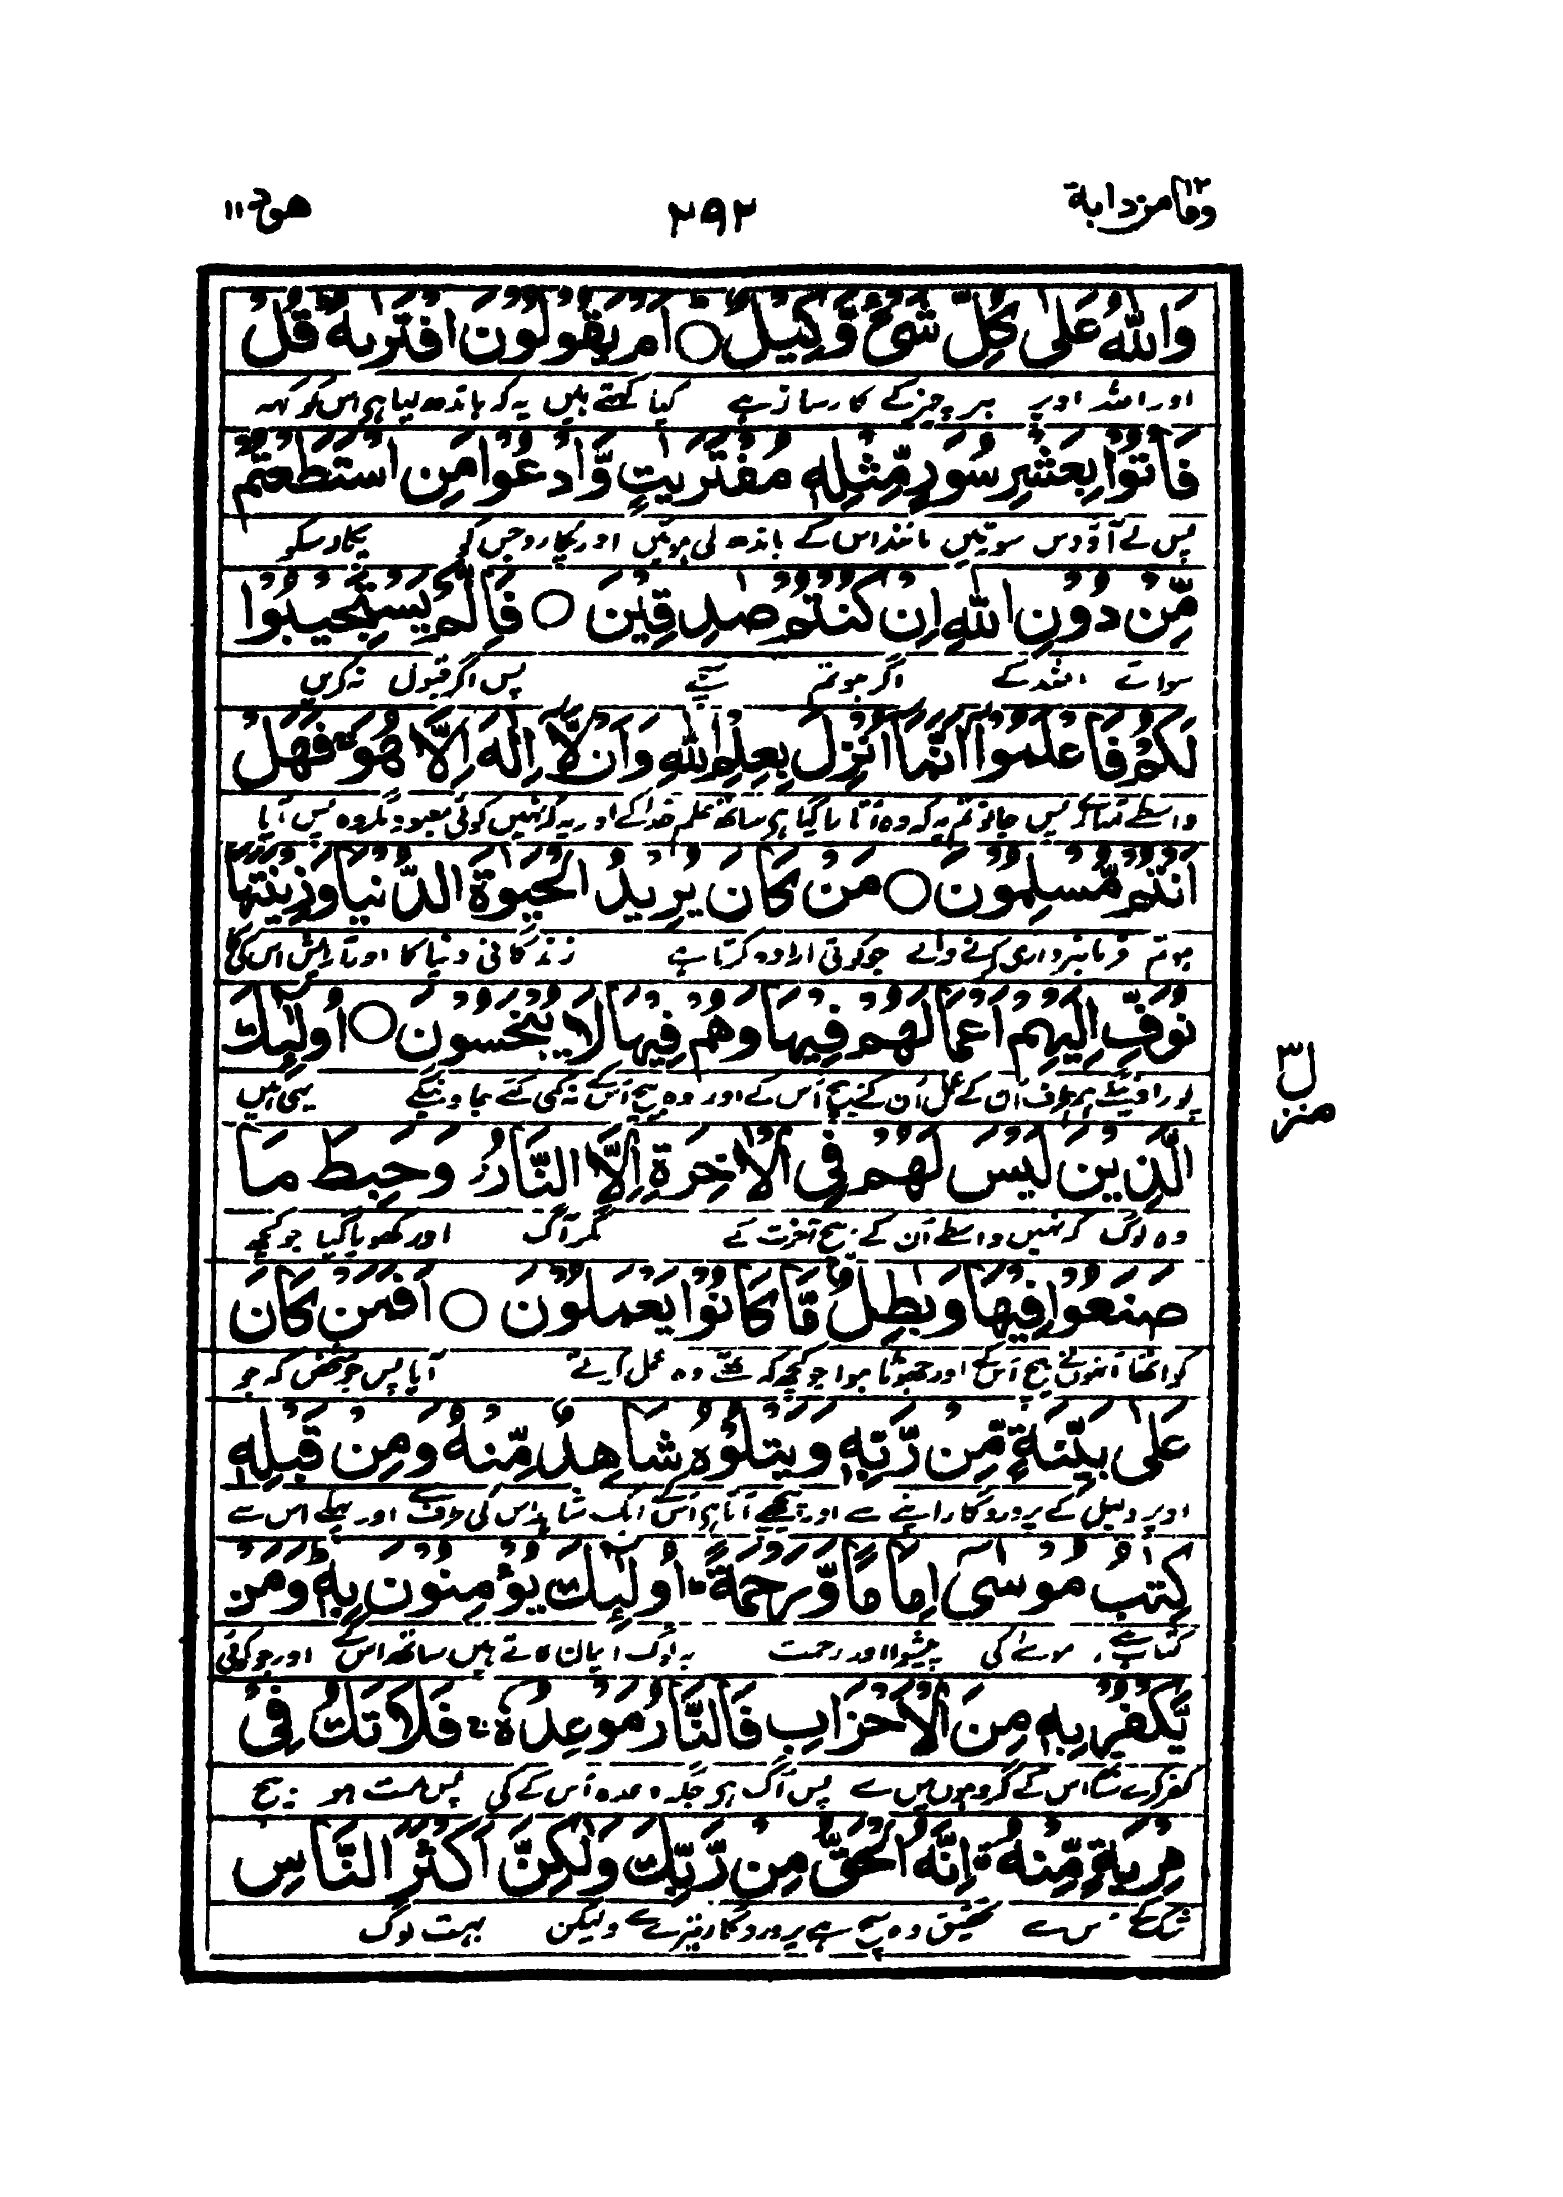 وما من دابة ١٢
٢٩٢
هود ١١
وَاللّٰهُ عَلٰى كُلِّ شَىْءٍ وَّكِيْلٌ ○ اَمْ يَقُوْلُوْنَ افْتَرٰىهُ ؕ قُلْ
اور اللہ اوپر ہر چیز کے کارساز ہے کیا کہتے ہیں یہ کہ باندھ لیا ہی اس کو کہہ
فَاْتُوْا بِعَشْرِ سُوَرٍ مِّثْلِهٖ مُفْتَرَيٰتٍ وَّادْعُوْا مَنِ اسْتَطَعْتُمْ
پس لے آؤ دس سورتیں مانند اس کے باندھ لی ہوئیں اور پکارو جس کو پکار سکو
مِّنْ دُوْنِ اللّٰهِ اِنْ كُنْتُمْ صٰدِقِيْنَ ○ فَاِلَّمْ يَسْتَجِيْبُوْا
سوائے اللہ کے اگر ہو تم سچے پس اگر قبول نہ کریں
لَكُمْ فَاعْلَمُوْۤا اَنَّمَاۤ اُنْزِلَ بِعِلْمِ اللّٰهِ وَاَنْ لَّاۤ اِلٰهَ اِلَّا هُوَ ۚ فَهَلْ
واسطے تمہارے پس جانو تم یہ کہ وہ اتارا گیا ہی ساتھ علم خدا کے اور یہ کہ نہیں کوئی معبود مگر وہ پس آیا
اَنْتُمْ مُّسْلِمُوْنَ ○ مَنْ كَانَ يُرِيْدُ الْحَيٰوةَ الدُّنْيَا وَزِيْنَتَهَا
ہو تم فرمانبرداری کرنے والے جو کوئی ارادہ کرتا ہے زندگانی دنیا کا اور آرایش اس کی
نُوَفِّ اِلَيْهِمْ اَعْمَالَهُمْ فِيْهَا وَهُمْ فِيْهَا لَا يُبْخَسُوْنَ ○ اُولٰٓئِكَ
پورا دینگے ہم طرف ان کے عمل ان کے بیچ اس کے اور وہ بیچ اس کے نہ کمی کئے جاوینگے یہی ہیں
الَّذِيْنَ لَيْسَ لَهُمْ فِى الْاٰخِرَةِ اِلَّا النَّارُ ۖ وَحَبِطَ مَا
وہ لوگ کہ نہیں واسطے ان کے بیچ آخرت کے مگر آگ اور کھویا گیا جو کچھ
صَنَعُوْا فِيْهَا وَبٰطِلٌ مَّا كَانُوْا يَعْمَلُوْنَ ○ اَفَمَنْ كَانَ
کو اٹھا انہوں نے بیچ اس کے اور جھوٹا ہوا جو کچھ کہ تھے وہ عمل کرتے آیا پس جو شخص کہ ہو
عَلٰى بَيِّنَةٍ مِّنْ رَّبِّهٖ وَيَتْلُوْهُ شَاهِدٌ مِّنْهُ وَمِنْ قَبْلِهٖ
اوپر دلیل کے پروردگار اپنے سے اور پیچھے آتا ہی اس کے ایک شاہد اس کی طرف سے اور پہلے اس سے
كِتٰبُ مُوْسٰۤى اِمَامًا وَّرَحْمَةً ؕ اُولٰٓئِكَ يُؤْمِنُوْنَ بِهٖ ؕ وَمَنْ
کتاب ہے موسےٰ کی پیشوا اور رحمت یہ لوگ ایمان لاتے ہیں ساتھ اس کے اور جو کوئی
يَّكْفُرْ بِهٖ مِنَ الْاَحْزَابِ فَالنَّارُ مَوْعِدُهٗ ۚ فَلَا تَكُ فِىْ
کفر کرے ساتھ اس کے گروہوں میں سے پس آگ ہی جگہ وعدہ اس کے کی پس مت ہو بیچ
مِرْيَةٍ مِّنْهُ ۗ اِنَّهُ الْحَقُّ مِنْ رَّبِّكَ وَلٰكِنَّ اَكْثَرَ النَّاسِ
شک کے اس سے تحقیق وہ سچ ہے پروردگار تیرے سے ولیکن بہت لوگ
منزل ٣